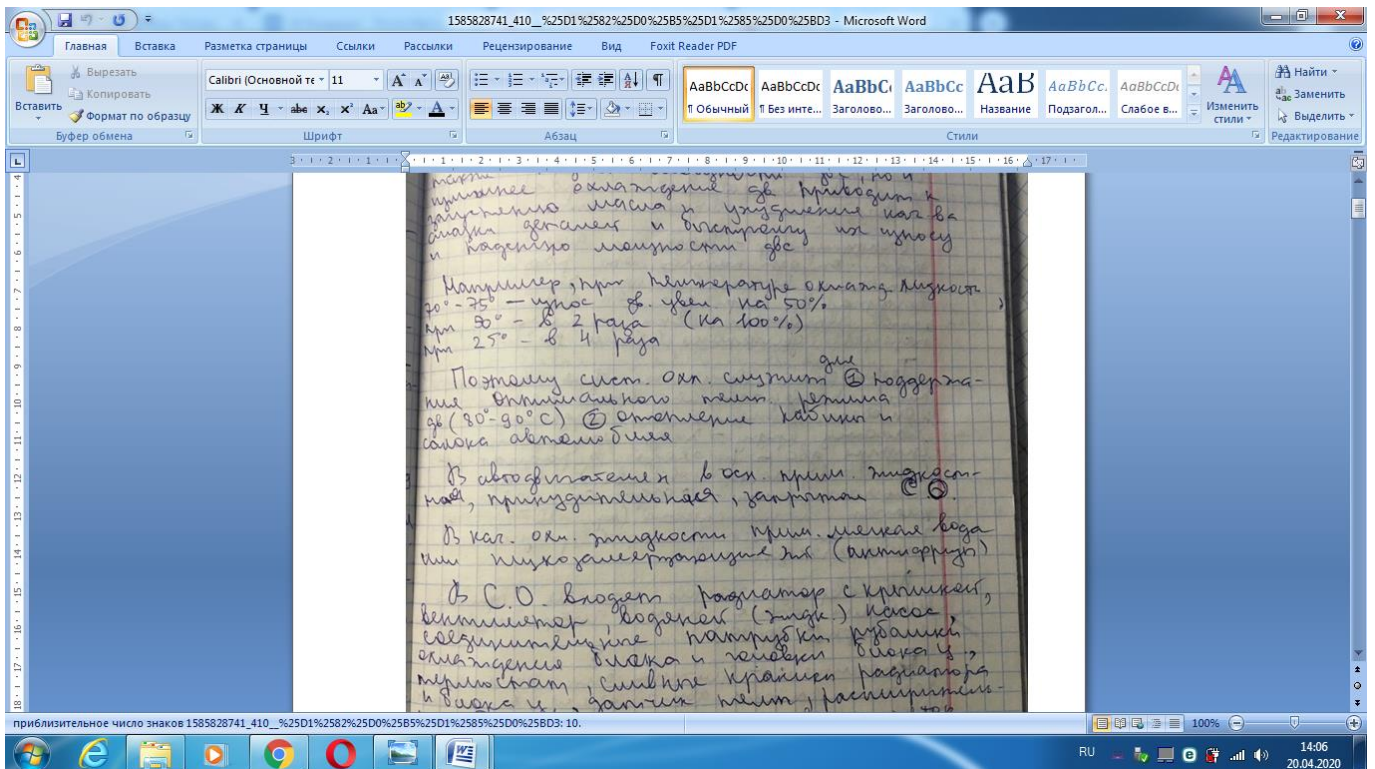 1585828741_410__%25D1%2582%25D0%25B5%25D1%2585%25D0%25BD3 - Microsoft Word
Главная Вставка Разметка страницы Ссылки Рассылки Рецензирование Вид Foxit Reader PDF
Вставить
Вырезать
Копировать
Формат по образцу
Буфер обмена
Calibri (Основной те 11
Ж К Ч abe x, x² Aa
Шрифт
Абзац
AaBbCcDc AaBbCcDc AaBbC AaBbCc AaB AaBbCc. AaBbCcDc
¶ Обычный ¶ Без инте... Заголово... Заголово... Название Подзагол... Слабое в...
Изменить стили
Стили
Найти
Заменить
Выделить
Редактирование
3 2 1 1 2 3 4 5 6 7 8 9 10 11 12 13 14 15 16 17
охлаждение дв приводит к
масла и ухудшение кач-ва
смазки деталей и быстрому их износу
и падению мощности двс
Например, при температуре охлажд. жидкость
70°-75° - износ дв. увел на 50%,
при 50° - в 2 раза (на 100%)
при 25° - в 4 раза
Поэтому сист. охл. служит для ① поддержа-
ния оптимального темп. режима
дв (80°-90°С) ② отопление кабины и
салона автомобиля
В автодвигателях в осн. прим. жидкост-
ная, принудительная, закрытая СО.
В кач. охл. жидкости прим. мягкая вода
или низкозамерзающие ж (антифризы)
В С.О. входят радиатор с крышкой,
вентилятор, водяной (жидк.) насос,
соединительные патрубки рубашки
охлаждения блока и головки блока ц.,
термостат, сливные краники радиатора
и блока ц., датчик темп, расширитель-
приблизительное число знаков 1585828741_410__%25D1%2582%25D0%25B5%25D1%2585%25D0%25BD3: 10.
100%
RU
14:06
20.04.2020